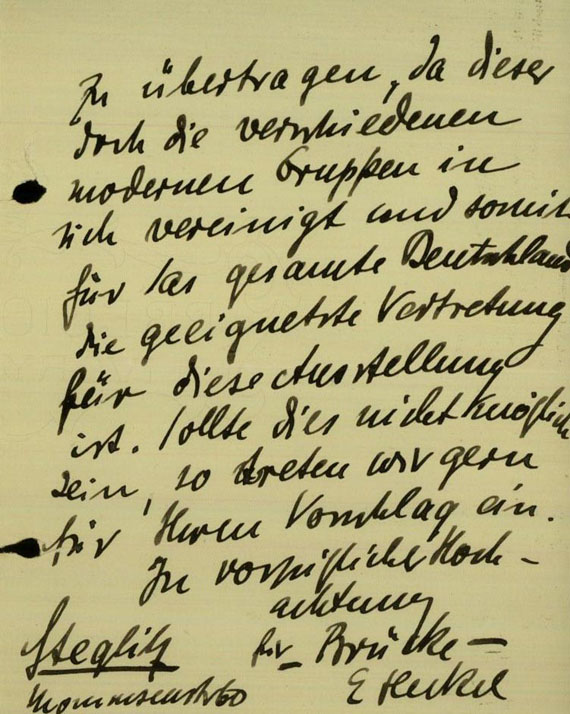 zu übertragen, da dieser
doch die verschiedenen
modernen Gruppen in
sich vereinigt und somit
für das gesamte Deutschland
die geeignetste Vertretung
für diese Ausstellung
ist. Sollte dies nicht möglich
sein, so treten wir gern
für Ihren Vorschlag ein.
In vorzüglicher Hoch-
achtung
Steglitz für „Brücke“
Mommsenstr 60 E Heckel